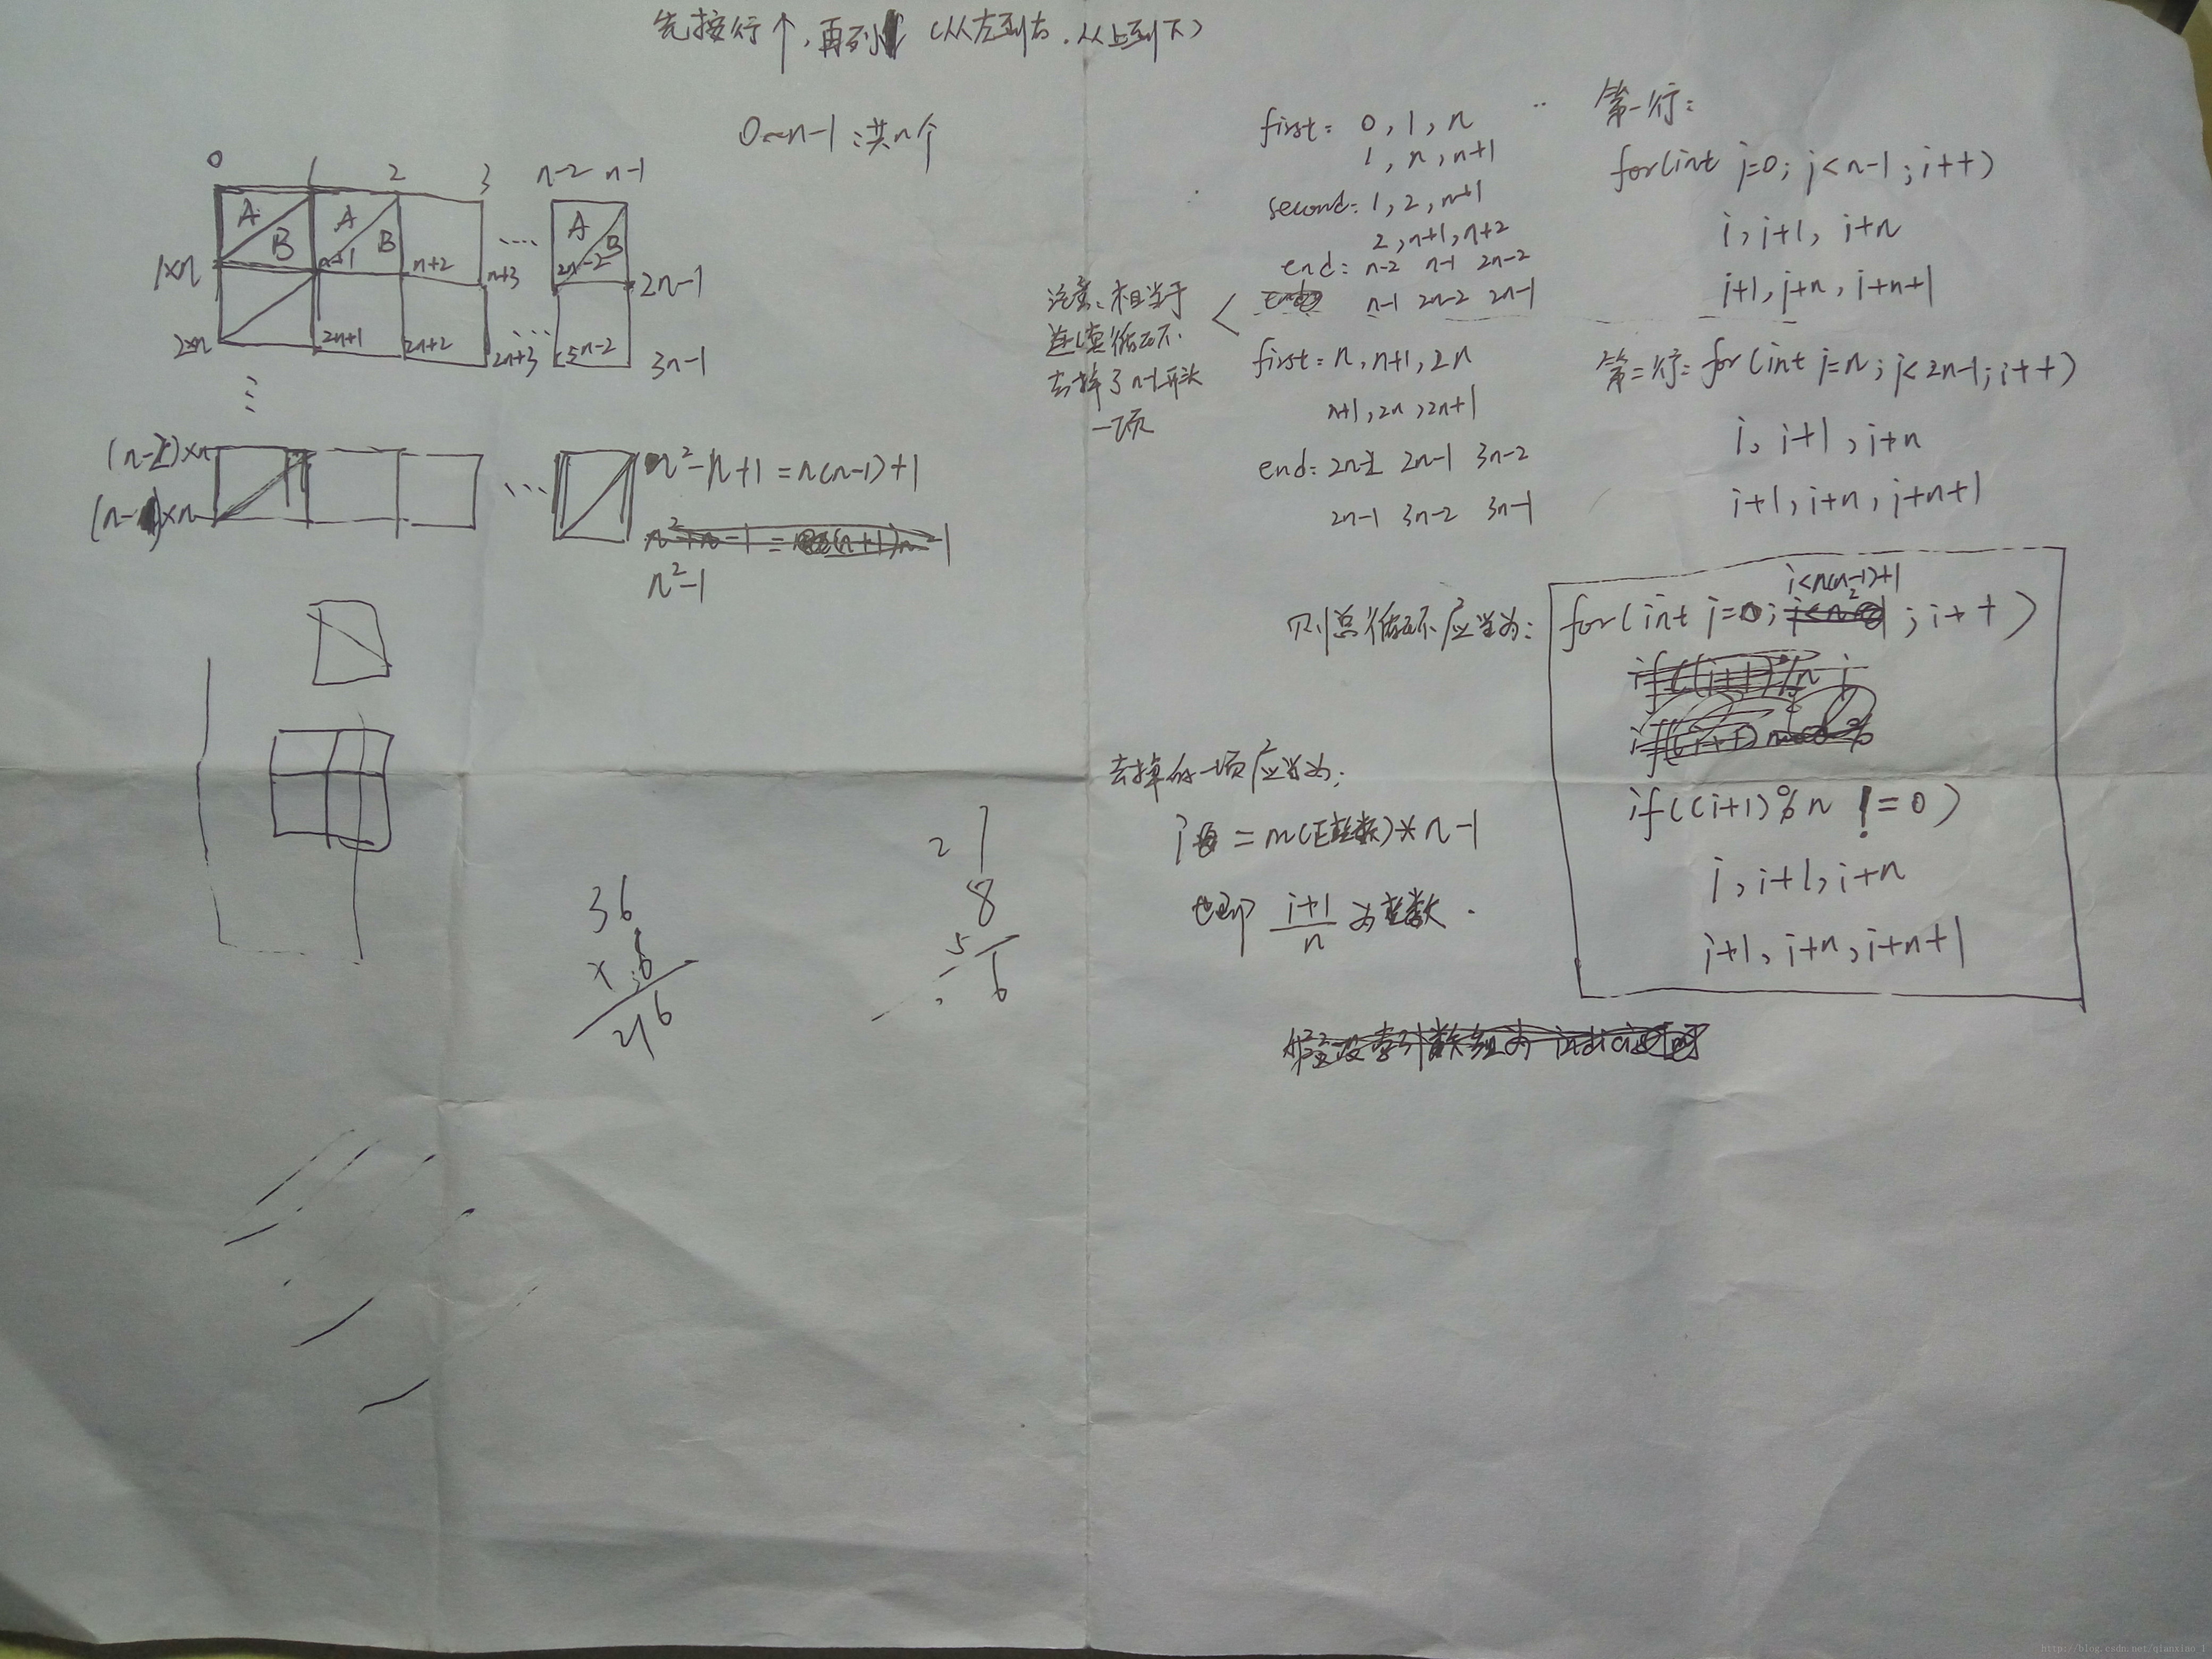 先按行↑,再列 (从左到右.从上到下)
0~n-1:共n个
0 1 2 3 n-2 n-1
A B A B A B
1×n n+1 n+2 n+3 2n-2 2n-1
2×n 2n+1 2n+2 2n+3 3n-2 3n-1
(n-2)×n n²-n+1=n(n-1)+1
(n-1)×n
n²-1
36
×6
216
2
8
5
6
first: 0,1,n
1,n,n+1
second: 1,2,n+1
2,n+1,n+2
end: n-2 n-1 2n-2
n-1 2n-2 2n-1
注意:相当于
连续循环.
去掉了n-1开头
一项
first: n,n+1,2n
n+1,2n,2n+1
end: 2n-2 2n-1 3n-2
2n-1 3n-2 3n-1
第一行:
for(int i=0;i<n-1;i++)
i,i+1,i+n
i+1,i+n,i+n+1
第二行: for(int i=n;i<2n-1;i++)
i,i+1,i+n
i+1,i+n,i+n+1
则总循环应当为:
i<n(n-1)+1
for(int i=0; ;i++)
if((i+1)%n !=0)
i,i+1,i+n
i+1,i+n,i+n+1
去掉的一项应当为:
i=m(正整数)*n-1
也即 i+1/n 为整数.
http://blog.csdn.net/qianxiao_1